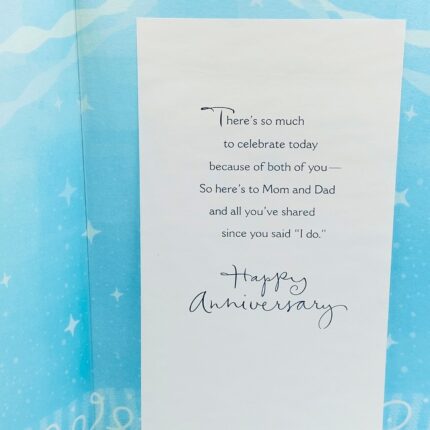 There's so much
to celebrate today
because of both of you—
So here's to Mom and Dad
and all you've shared
since you said "I do."
Happy
Anniversary